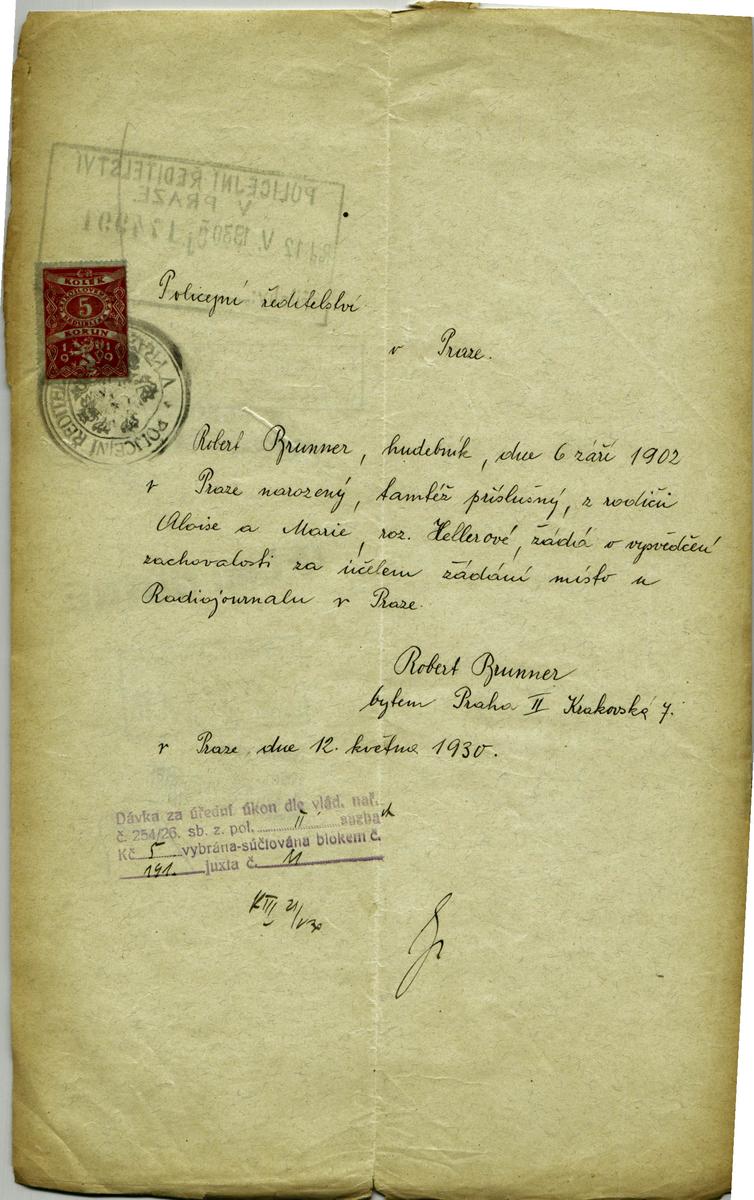 POLICEJNÍ ŘEDITELSTVÍ
V PRAZE.
12 V. 1930
KOLEK
5
KORUN
POLICEJNÍ ŘEDITEL V PRAZE
Policejní ředitelství
v Praze.
Robert Brunner, hudebník, dne 6 září 1902
v Praze narozený, tamtéž příslušný, z rodičů
Aloise a Marie, roz. Hellerové, žádá o vysvědčení
zachovalosti za účelem žádání místo u
Radiojournalu v Praze.
Robert Brunner
bytem Praha II Krakovská 7.
v Praze dne 12. května 1930.
Dávka za úřední úkon dle vlád. nař.
č. 254/26. sb. z. pol. II sazba
Kč 5 vybrána-súčtována blokem č.
191. juxta č. 11